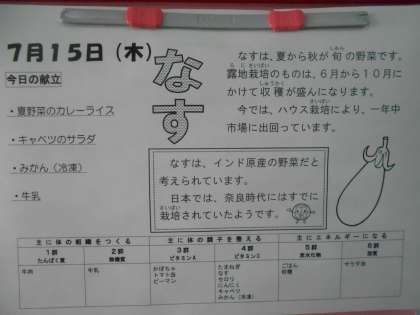 7月15日(木)
今日の献立
・夏野菜のカレーライス
・キャベツのサラダ
・みかん(冷凍)
・牛乳
なす
なすは、夏から秋が旬の野菜です。
露地栽培のものは、6月から10月に
かけて収穫が盛んになります。
今では、ハウス栽培により、一年中
市場に出回っています。
なすは、インド原産の野菜だと
考えられています。
日本では、奈良時代にはすでに
栽培されていたようです。
主に体の組織をつくる
主に体の調子を整える
主にエネルギーになる
1群 2群 3群 4群 5群 6群
たんぱく質 無機質 ビタミンA ビタミンC 炭水化物 脂質
牛肉
牛乳
かぼちゃ
トマト缶
ピーマン
たまねぎ
なす
セロリ
にんにく
キャベツ
みかん(冷凍)
ごはん
砂糖
サラダ油